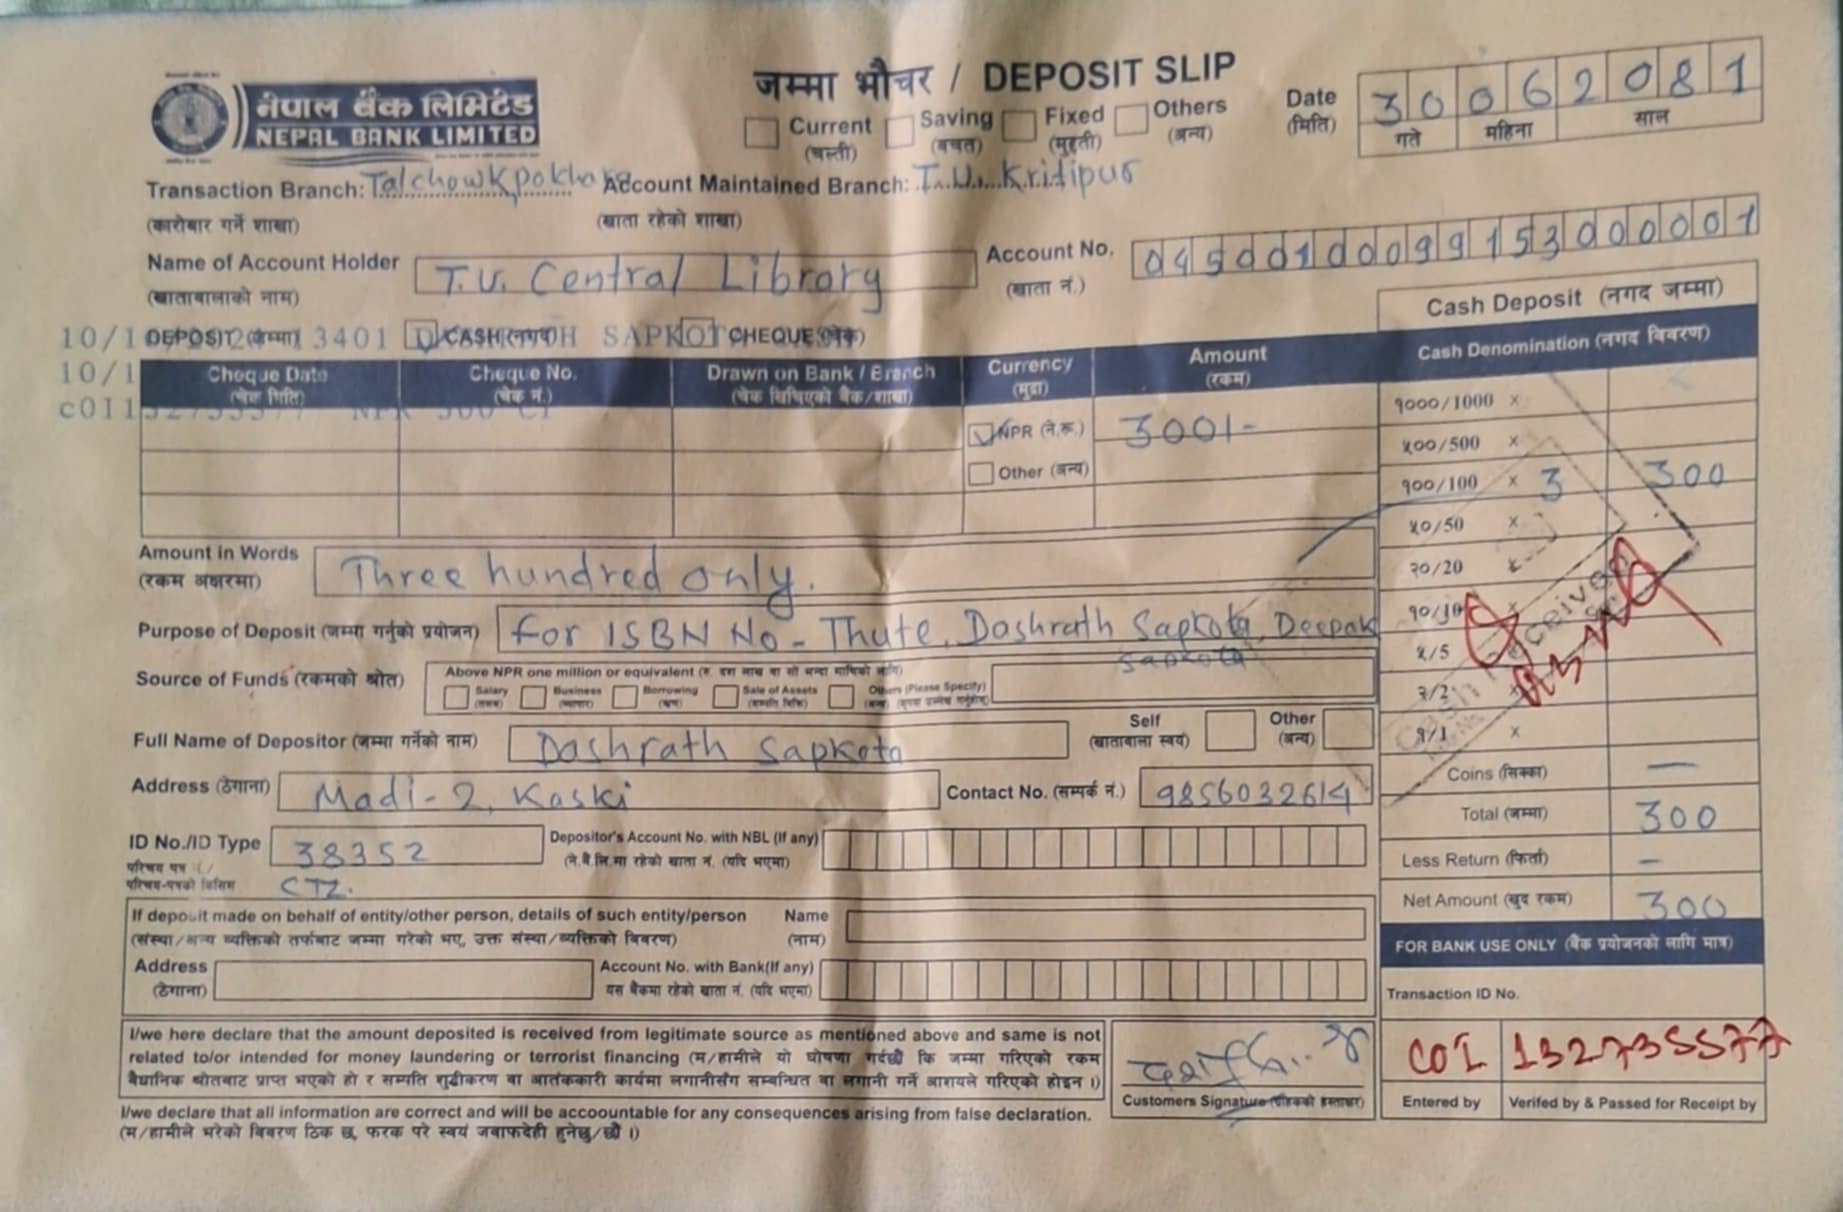 नेपाल बैंक लिमिटेड
NEPAL BANK LIMITED
जम्मा भौचर / DEPOSIT SLIP
Current (चल्ती) Saving (बचत) Fixed (मुद्दती) Others (अन्य)
Date (मिति) 30 06 2081
गते महिना साल
Transaction Branch: Talchowk pokhara Account Maintained Branch: T.U. Kritipur
(कारोबार गर्ने शाखा) (खाता रहेको शाखा)
Name of Account Holder T.U. Central Library Account No. 04500100099153000001
(खातावालाको नाम) (खाता नं.)
DEPOSIT (जम्मा) 3401 CASH (नगद) SAPKOT CHEQUE (चेक)
Cheque Date (चेक मिति) Cheque No. (चेक नं.) Drawn on Bank / Branch (चेक खिचिएको बैंक/शाखा) Currency (मुद्रा) Amount (रकम)
NPR (ने.रू.) 300/-
Other (अन्य)
Cash Deposit (नगद जम्मा)
Cash Denomination (नगद विवरण)
१०००/1000 x
५००/500 x
१००/100 x 3 300
५०/50 x
२०/20 x
१०/10 x
५/5
२/2 x
१/1 x
Coins (सिक्का) —
Total (जम्मा) 300
Less Return (फिर्ता) –
Net Amount (खुद रकम) 300
Amount in Words Three hundred only.
(रकम अक्षरमा)
Purpose of Deposit (जम्मा गर्नुको प्रयोजन) for ISBN No - Thute, Dashrath Sapkota, Deepak
Sapkota
Source of Funds (रकमको श्रोत) Above NPR one million or equivalent
Salary Business Borrowing Sale of Assets Others (Please Specify)
Full Name of Depositor (जम्मा गर्नेको नाम) Dashrath Sapkota Self (खातावाला स्वयं) Other (अन्य)
Address (ठेगाना) Madi-2, Kaski Contact No. (सम्पर्क नं.) 9856032614
ID No./ID Type 38352 Depositor's Account No. with NBL (If any)
परिचय पत्र (ने.बै.लि.मा रहेको खाता नं. (यदि भएमा)
परिचय-पत्रको किसिम CTZ.
If deposit made on behalf of entity/other person, details of such entity/person Name
(संस्था/अन्य व्यक्तिको तर्फबाट जम्मा गरेको भए, उक्त संस्था/व्यक्तिको विवरण) (नाम)
Address Account No. with Bank(If any)
(ठेगाना) यस बैंकमा रहेको खाता नं. (यदि भएमा)
FOR BANK USE ONLY (बैंक प्रयोजनको लागि मात्र)
Transaction ID No.
COI 1327355577
Entered by Verifed by & Passed for Receipt by
I/we here declare that the amount deposited is received from legitimate source as mentioned above and same is not
related to/or intended for money laundering or terrorist financing (म/हामीले यो घोषणा गर्दछौं कि जम्मा गरिएको रकम
बैधानिक श्रोतबाट प्राप्त भएको हो र सम्पति शुद्धीकरण वा आतंककारी कार्यमा लगानीसँग सम्बन्धित वा लगानी गर्ने आशयले गरिएको होइन ।)
Customers Signature (ग्राहकको हस्ताक्षर)
I/we declare that all information are correct and will be accoountable for any consequences arising from false declaration.
(म/हामीले भरेको विवरण ठिक छ, फरक परे स्वयं जवाफदेही हुनेछु/छौं ।)